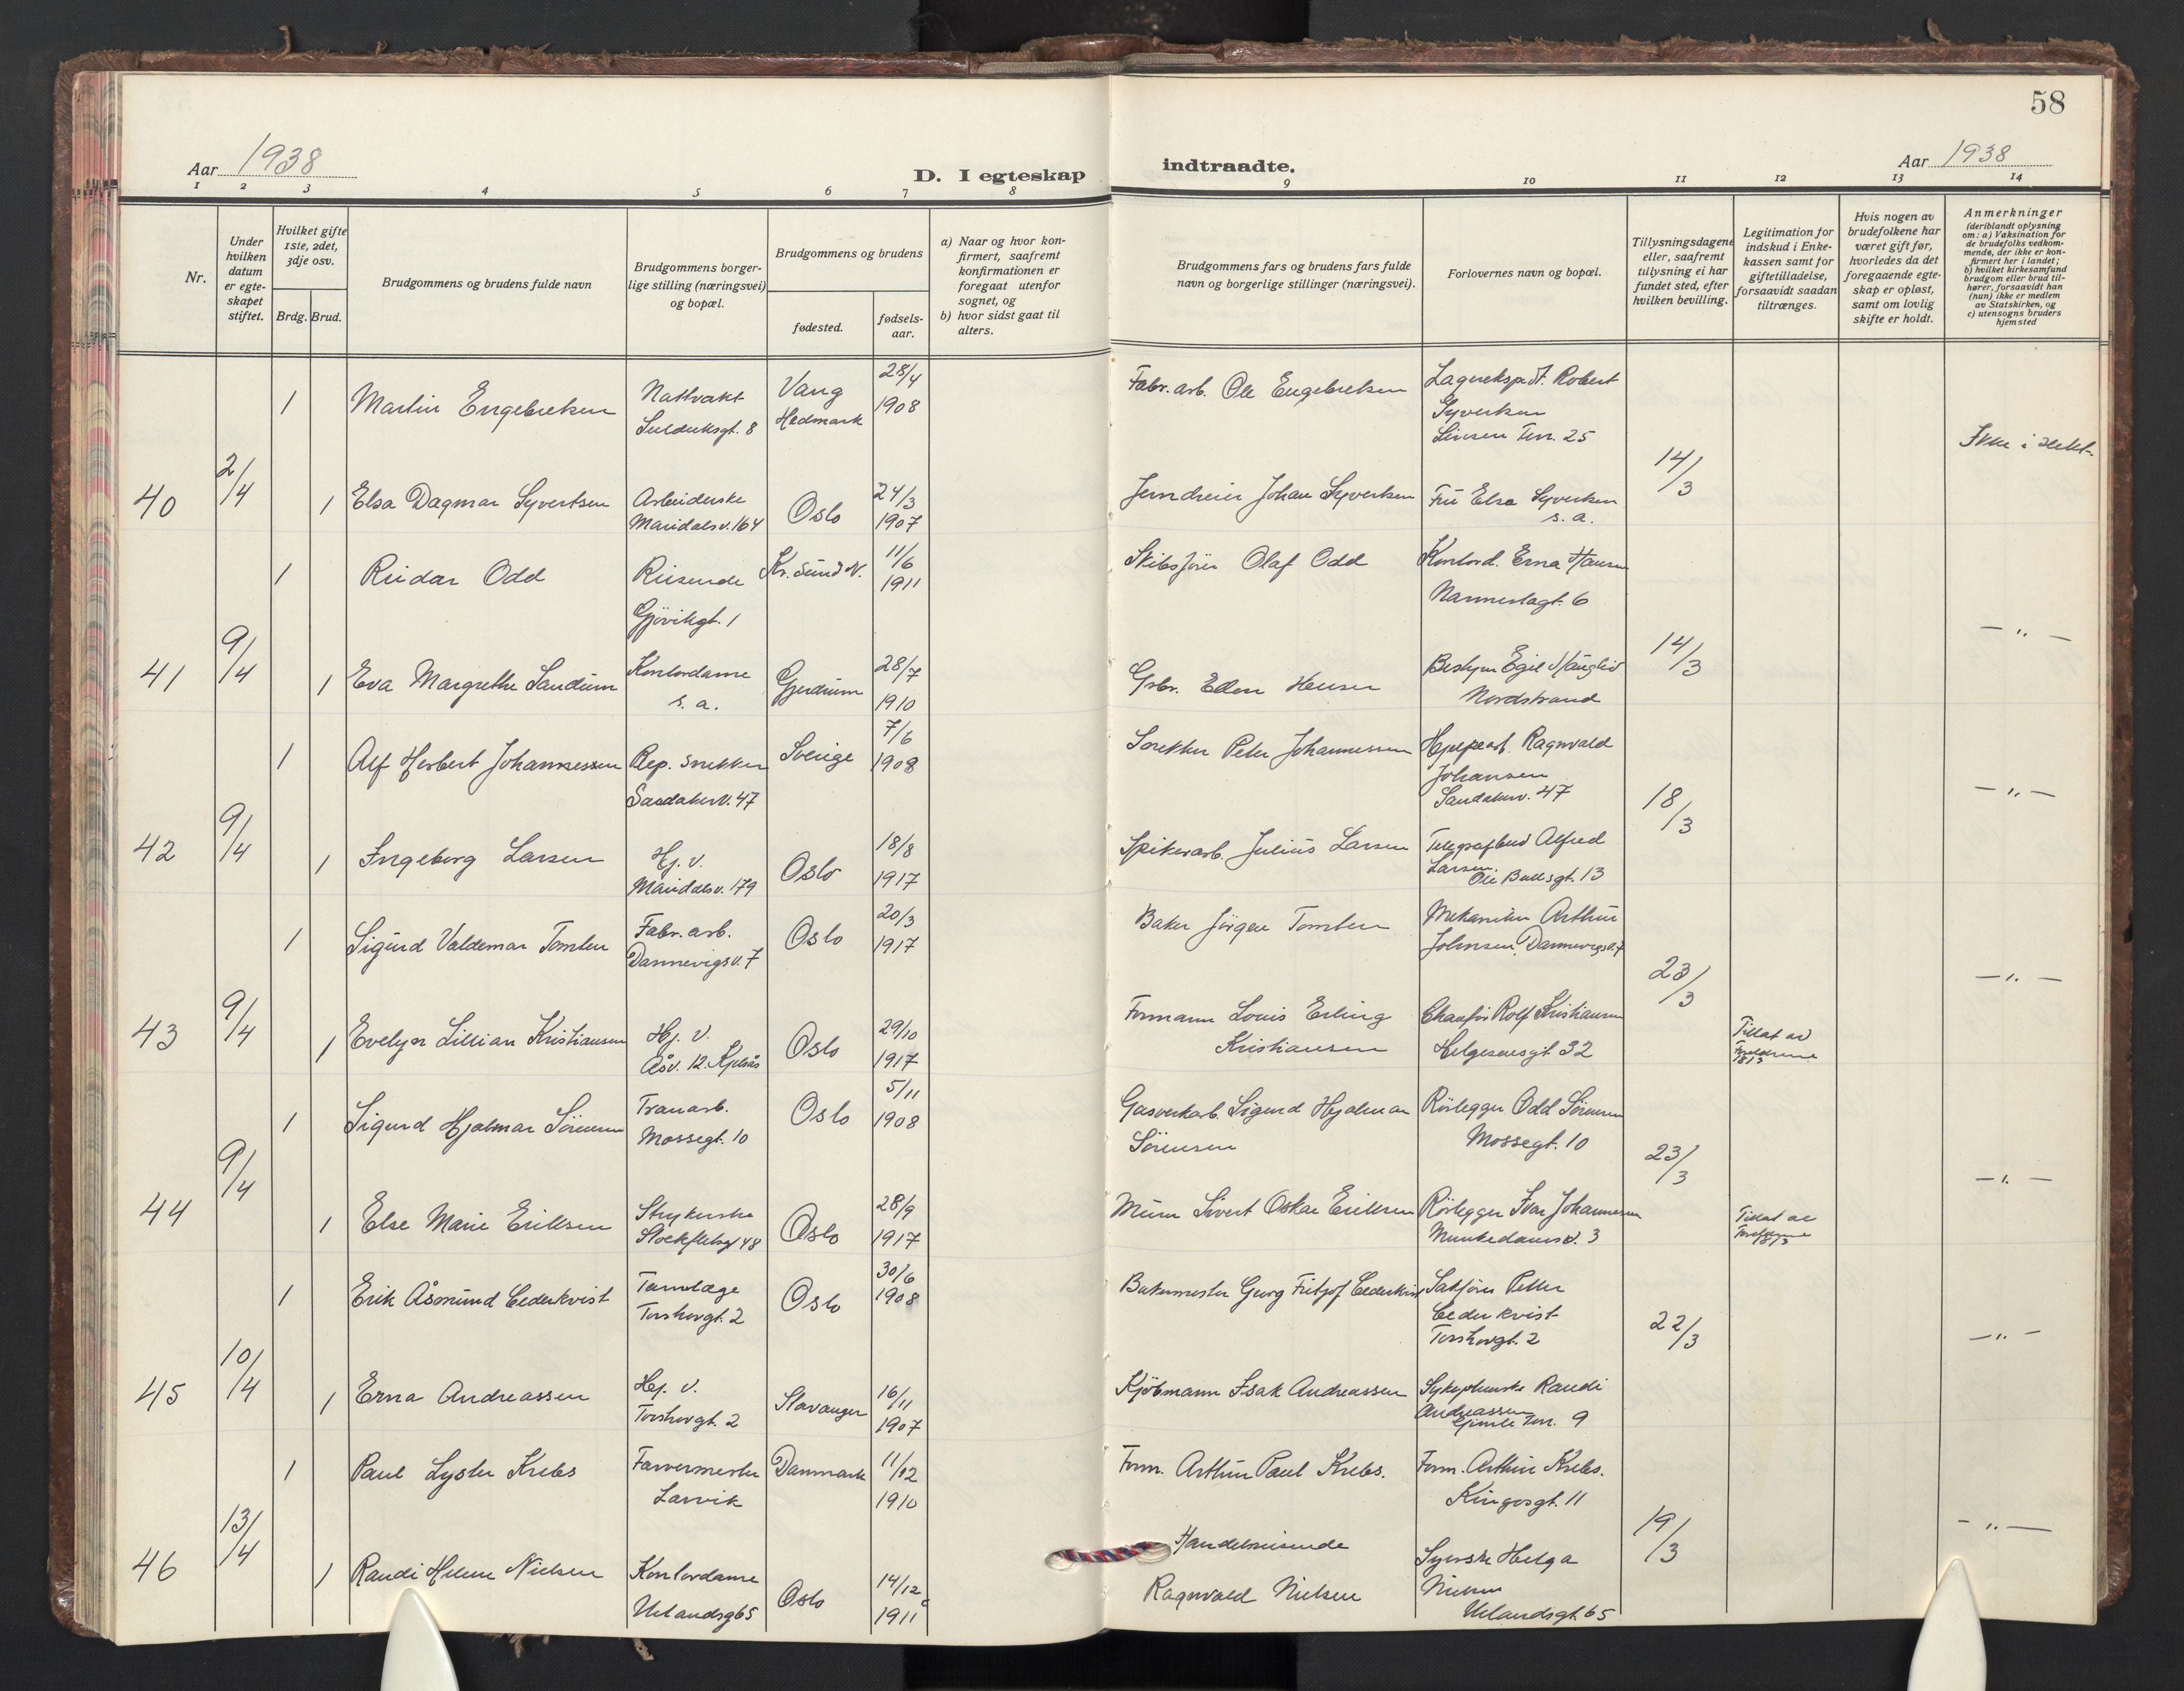 58
Aar 1938
D. I egteskap
indtraadte.
Aar 1938
1 2 3 4 5 6 7 8 9 10 11 12 13 14
Nr.
Under hvilken datum er egte-skapet stiftet.
Hvilket gifte 1ste, 2det, 3dje osv.
Brdg. Brud.
Brudgommens og brudens fulde navn
Brudgommens borger-lige stilling (næringsvei) og bopæl.
Brudgommens og brudens
fødested.
fødsels-aar.
a) Naar og hvor kon-firmert, saafremt konfirmationen er foregaat utenfor sognet, og
b) hvor sidst gaat til alters.
Brudgommens fars og brudens fars fulde navn og borgerlige stillinger (næringsvei).
Forlovernes navn og bopæl.
Tillysningsdagene eller, saafremt tillysning ei har fundet sted, efter hvilken bevilling.
Legitimation for indskud i Enke-kassen samt for giftetilladelse, forsaavidt saadan tiltrænges.
Hvis nogen av brudefolkene har været gift før, hvorledes da det foregaaende egte-skap er opløst, samt om lovlig skifte er holdt.
Anmerkninger (deriblandt oplysning om: a) Vaksination for de brudefolks vedkom-mende, der ikke er kon-firmert her i landet; b) hvilket kirkesamfund brudgom eller brud til-hører, forsaavidt han (hun) ikke er medlem av Statskirken, og c) utensogns bruders hjemsted
1 Martin Engebretsen Nattvakt Vang Hedmark 28/4 1908 Fabr. arb. Ole Engebretsen Robert Syvertsen Sinsen Terr. 25
40 2/4 1 Elsa Dagmar Syvertsen Arbeiderske Maridalsv. 164 Oslo 24/3 1907 Jerndreier Johan Syvertsen Fru Elsa Syvertsen s. a. 14/3 Ikke i slekt.
1 Reidar Odd Reisende Gjövikgt. 1 Kr. sund N. 11/6 1911 Skibsförer Olaf Odd Kontord. Erna Hansen Nannestagt. 6
41 9/4 1 Eva Margrethe Sandum Kontordame s. a. Gjerdrum 28/7 1910 Gsbr. Hensen Bestyrer Egil Nordstrand 14/3 — " —
1 Alf Herbert Johannessen Rep. snekker Sandakerv. 47 Sverige 7/6 1908 Snekker Peter Johannessen Hjelpearb. Ragnvald Johansen Sandakerv. 47
42 9/4 1 Ingeborg Larsen Hj. v. Maridalsv. 179 Oslo 18/8 1917 Spikerarb. Julius Larsen Telegrafbud Alfred Larsen Ole Bullsgt. 13 18/3 — " —
1 Sigurd Valdemar Tomten Fabr. arb. Dannevigsv. 7 Oslo 20/3 1917 Baker Jörgen Tomten Mekaniker Arthur Johnsen, Dannevigsv. 7
43 9/4 1 Evelyn Lillian Kristiansen Hj. v. Åsv. 12. Kjelsås Oslo 29/10 1917 Formann Louis Erling Kristiansen Chauffør Rolf Kristiansen Helgesensgt. 32 23/3 Tillat av Foreldrene 18/3 — " —
1 Sigurd Hjalmar Sörensen Tranarb. Mossegt. 10 Oslo 5/11 1908 Gasverkarb. Sigurd Hjalmar Sörensen Rörlegger Odd Sörensen Mossegt. 10
44 9/4 1 Else Marie Eriksen Strykerske 48 Oslo 28/9 1917 Murer Sivert Oskar Eriksen Rörlegger Ivar Johannessen Munkedamsv. 3 23/3 Tillat av Foreldrene 18/3 — " —
1 Erik Åsmund Cederkvist Tannlæge Torshovgt. 2 Oslo 30/6 1908 Bakermester Georg Fritjof Cederkvist Sakfører Petter Cederkvist Torshovgt. 2
45 10/4 1 Erna Andreassen Hj. v. Torshovgt. 2 Stavanger 16/11 1907 Kjöbmann Isak Andreassen Sykepleierske Randi Andreassen Gimle terr. 9 22/3 — " —
1 Paul Lyster Krebs Farvermester Larvik Danmark 11/12 1910 Form. Arthur Paul Krebs. Form. Arthur Krebs. Kingosgt. 11
46 13/4 1 Randi Helene Nielsen Kontordame Uelandsg 65 Oslo 14/12 1911 Handelsreisende Ragnvald Nielsen Syerske Helga Nielsen Uelandsgt. 65 19/3 — " —